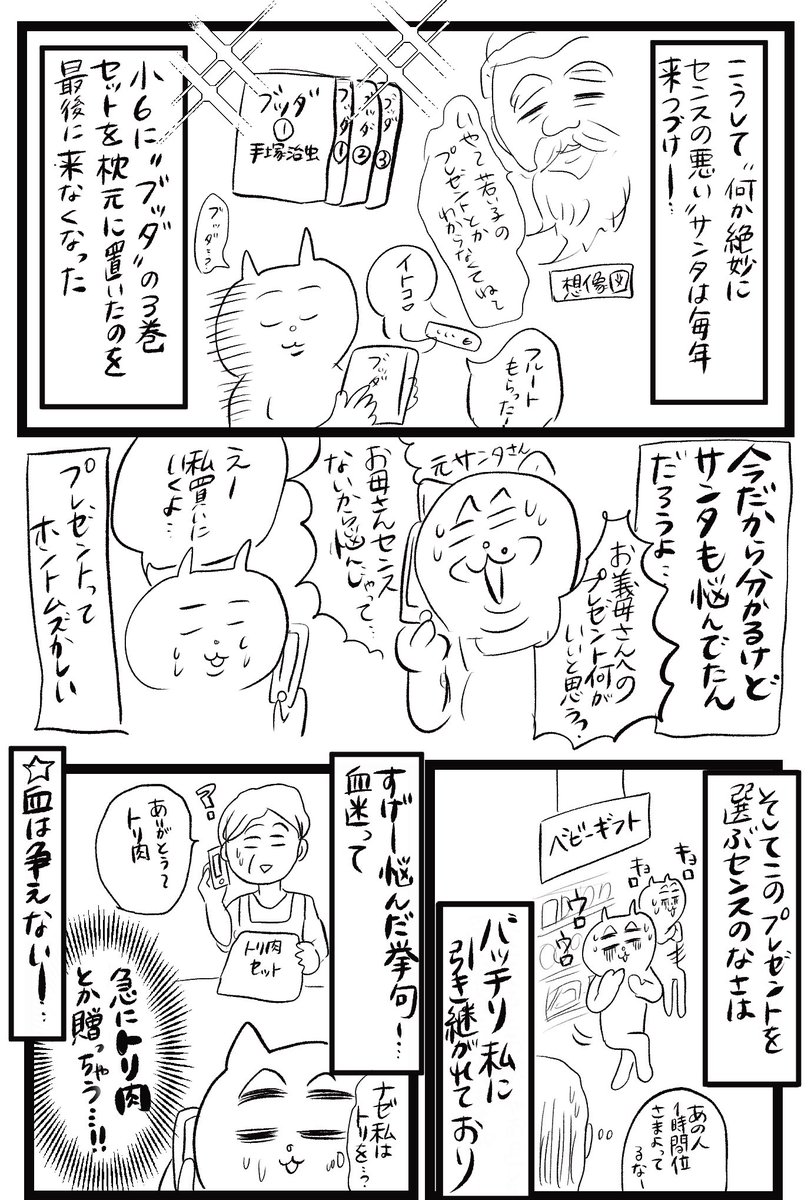 こうして”何か絶妙に
センスの悪い”サンタは毎年
来つづけー…
いやて若い子の
プレゼントとか
わからなくてねて
想像図
ブッダ
①
手塚治虫
ブッダ
①
ブッダ
②
ブッダ
③
イトコ
フルート
もらったー
ブッダ…?
ブッダ
小6に”ブッダ”の3巻
セットを枕元に置いたのを
最後に来なくなった
今だから分かるけど
サンタも悩んでたん
だろうよ…
お義母さんへの
プレゼント何が
いいと思う?
元サンタさん
お母さんセンス
ないから悩んじゃって…
えー
私買いに
いくよ…
プレゼントって
ホントムズかしい
そしてこのプレゼントを
選ぶセンスのなさは
ベビーギフト
キョロ
キョロ
ウロ
ウロ
バッチリ私に
引き継がれており
あの人
1時間位
さまよって
るなー
すげー悩んだ挙句ー…
血迷って
?
ありがとうて
トリ肉
トリ肉
セット
急にトリ肉
とか贈っちゃう…!!
ナゼ私は
トリを…?
☆血は争えないー…